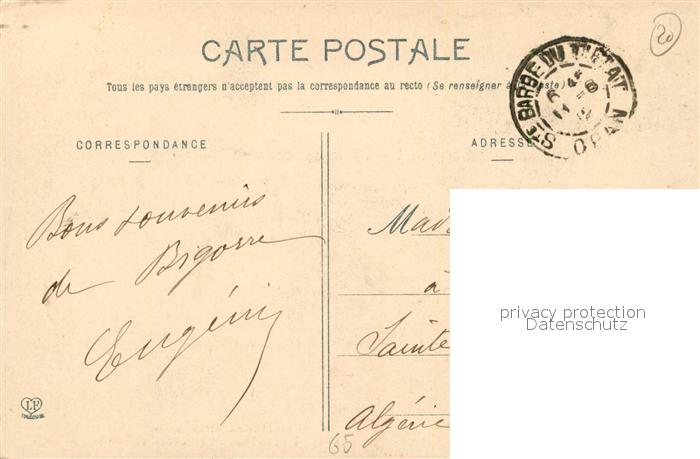 20
CARTE POSTALE
Tous les pays étrangers n'acceptent pas la correspondance au recto (Se renseigner à la Poste)
STE BARBE DU TLÉLAT
ORAN
CORRESPONDANCE
ADRESSE
Bons souvenirs
de Bigorre
Eugénie
Mad
à
Sainte
Algérie
privacy protection
Datenschutz
LF
65